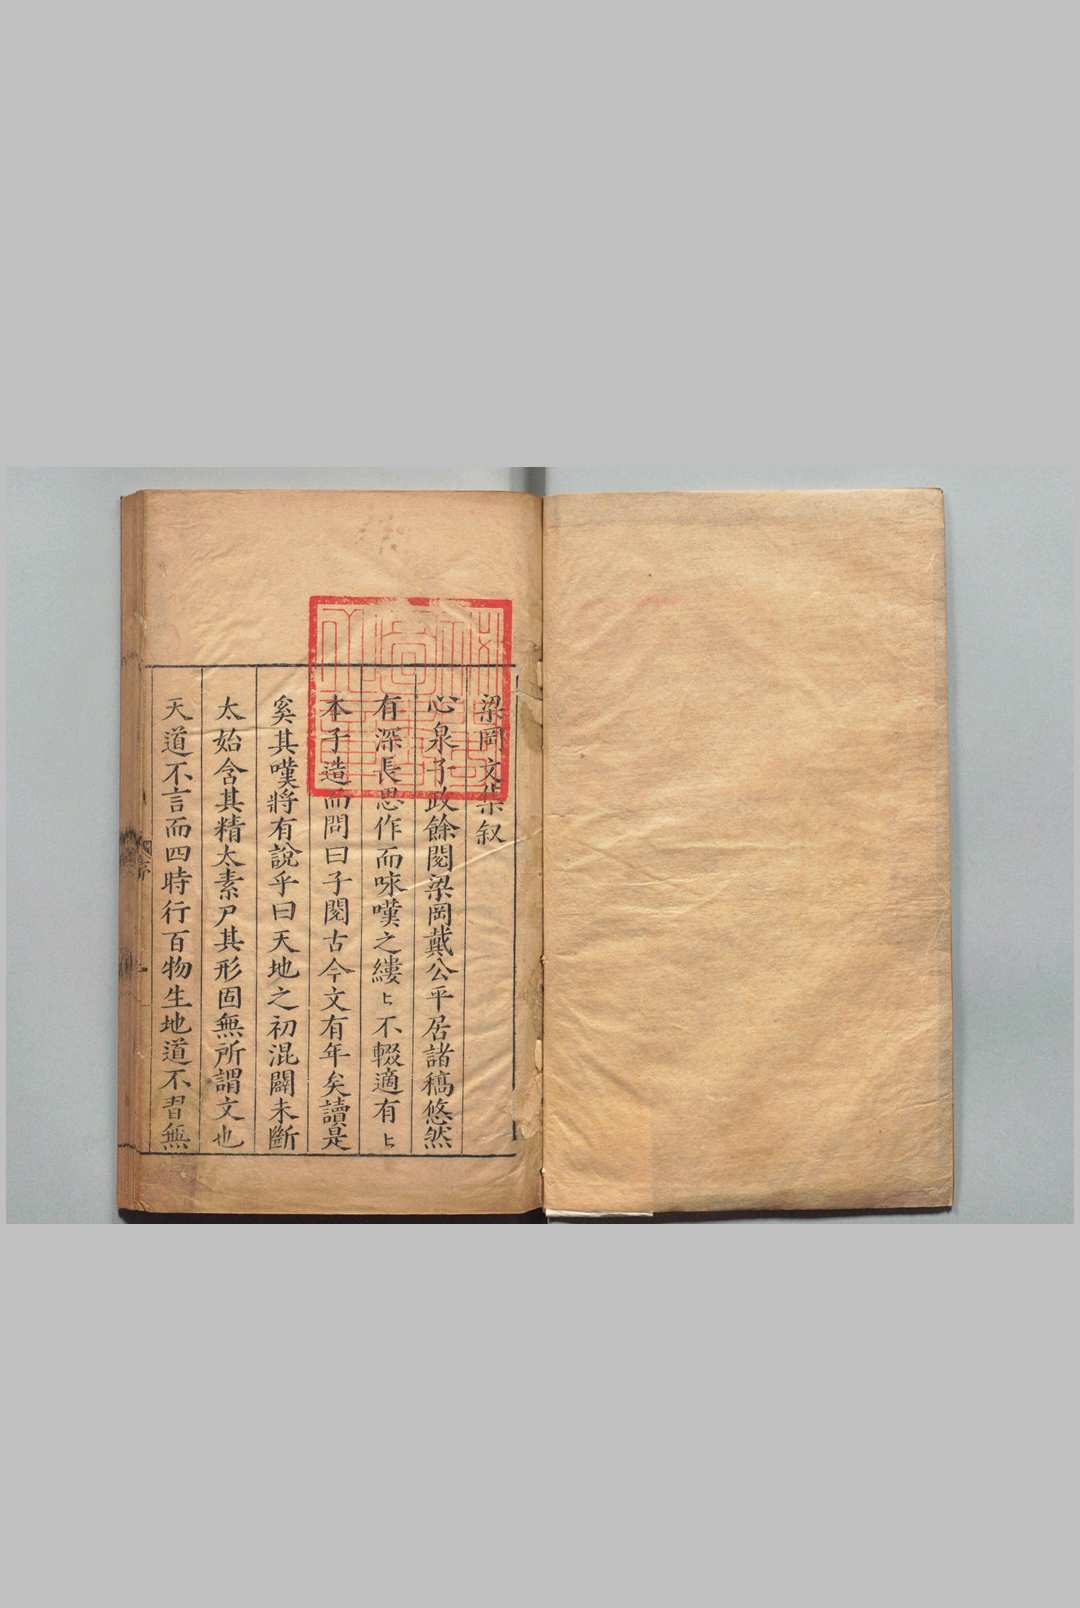 梁岡文集叙
心泉子政餘閱梁岡戴公平居諸稿悠然
有深長思作而咏嘆之縷〻不輟適有〻
本子造而問曰子閱古今文有年矣讀是
奚其嘆將有說乎曰天地之初混闢未斷
太始含其精太素尸其形固無所謂文也
天道不言而四時行百物生地道不習無